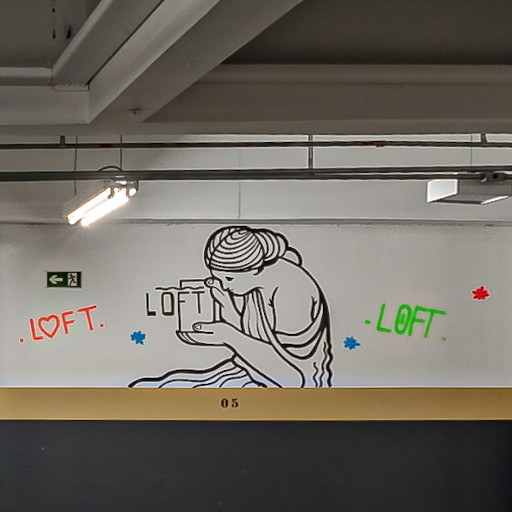 LOFT
.L♡FT.
.LOFT.
05